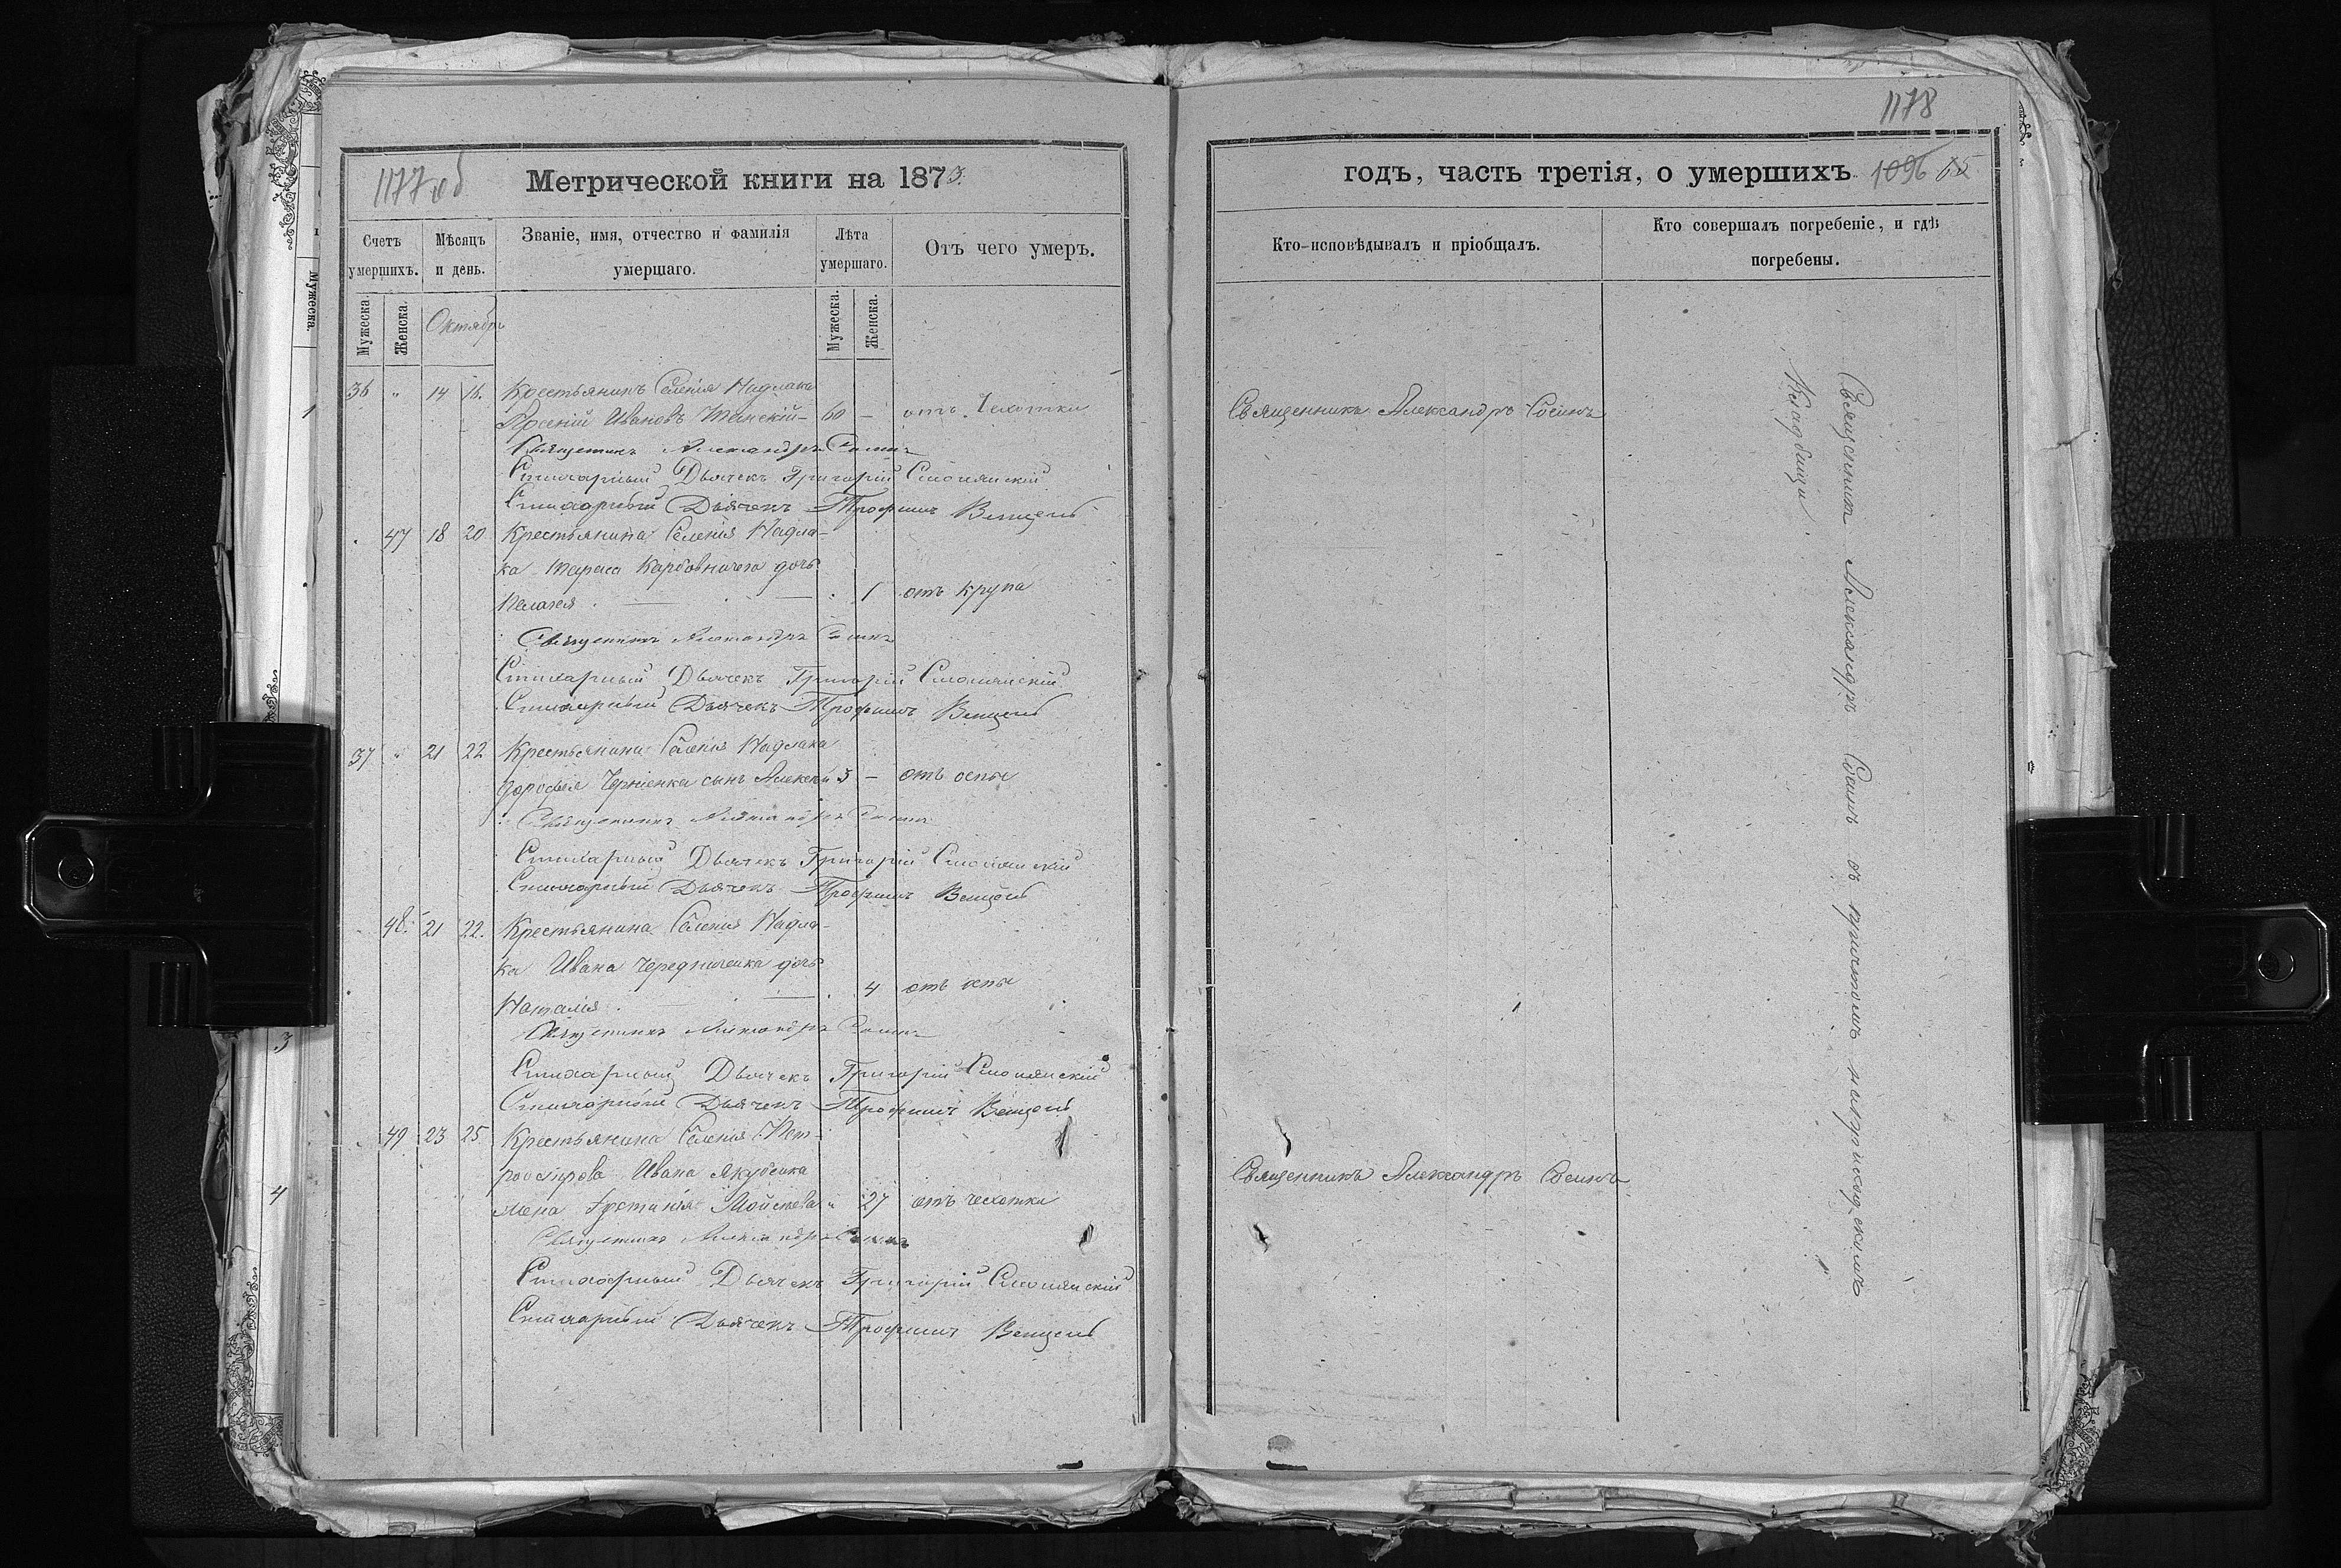 1177 об
Метрической книги на 1873.
Счетъ умершихъ.
Мѣсяцъ и день.
Званіе, имя, отчество и фамилія умершаго.
Лѣта умершаго.
Отъ чего умеръ.
Мужеска.
Женска.
Октябрь
Мужеска.
Женска.
36 " 14 16. Крестьянинъ Селенія Надлака
Арсеній Ивановъ 60 — отъ Чахотки
Священникъ Александръ
Стихарный Дьячекъ Григорій Смолянскій
Стихарный Дьячекъ Трофимъ
47 18 20 Крестьянина Селенія Надла-
ка Тараса Карбовничего дочь
Пелагея 1 отъ крупа
Священникъ Александръ
Стихарный Дьячекъ Григорій Смолянскій
Стихарный Дьячекъ Трофимъ
37 " 21 22 Крестьянина Селенія Надлака
Дорофея Черненка сынъ Алексѣй 3 — отъ оспы
Священникъ Александръ
Стихарный Дьячекъ Григорій Смолянскій
Стихарный Дьячекъ Трофимъ
48. 21 22. Крестьянина Селенія Надла-
ка Ивана Чередниченка дочь
Наталія 4 отъ оспы
Священникъ Александръ
Стихарный Дьячекъ Григорій Смолянскій
Стихарный Дьячекъ Трофимъ
49 23 25 Крестьянина Селенія Пет-
роострова Ивана Якубенка
жена Моисеева " 27 отъ чахотки
Священникъ Александръ
Стихарный Дьячекъ Григорій Смолянскій
Стихарный Дьячекъ Трофимъ
1178
годъ, часть третія, о умершихъ
1096 об
Кто исповѣдывалъ и пріобщалъ.
Кто совершалъ погребеніе, и гдѣ погребены.
Священникъ Александръ
Священникъ Александръ
Священникъ Александръ съ причтомъ на приходскомъ
Кладбищѣ.